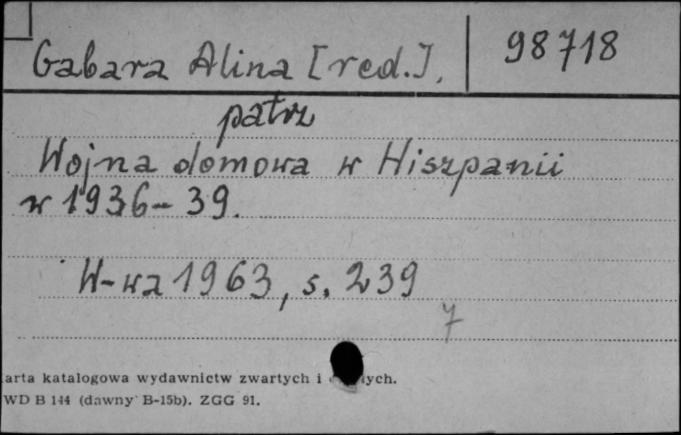 Gabara Alina [red.], 98718
patrz
Wojna domowa w Hiszpanii
w 1936-39.
W-wa 1963, s. 239
7
arta katalogowa wydawnictw zwartych i
WD B 144 (dawny B-15b). ZGG 91.